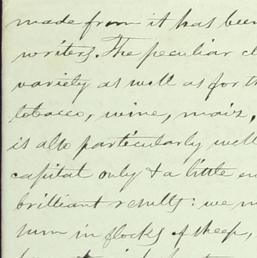 made from it has been
writers. The peculiar cl
variety as well as for th
tobacco, wine, maiz,
is also particularly well
capital only & a little en
brilliant results: we m
turn in flocks of sheep,